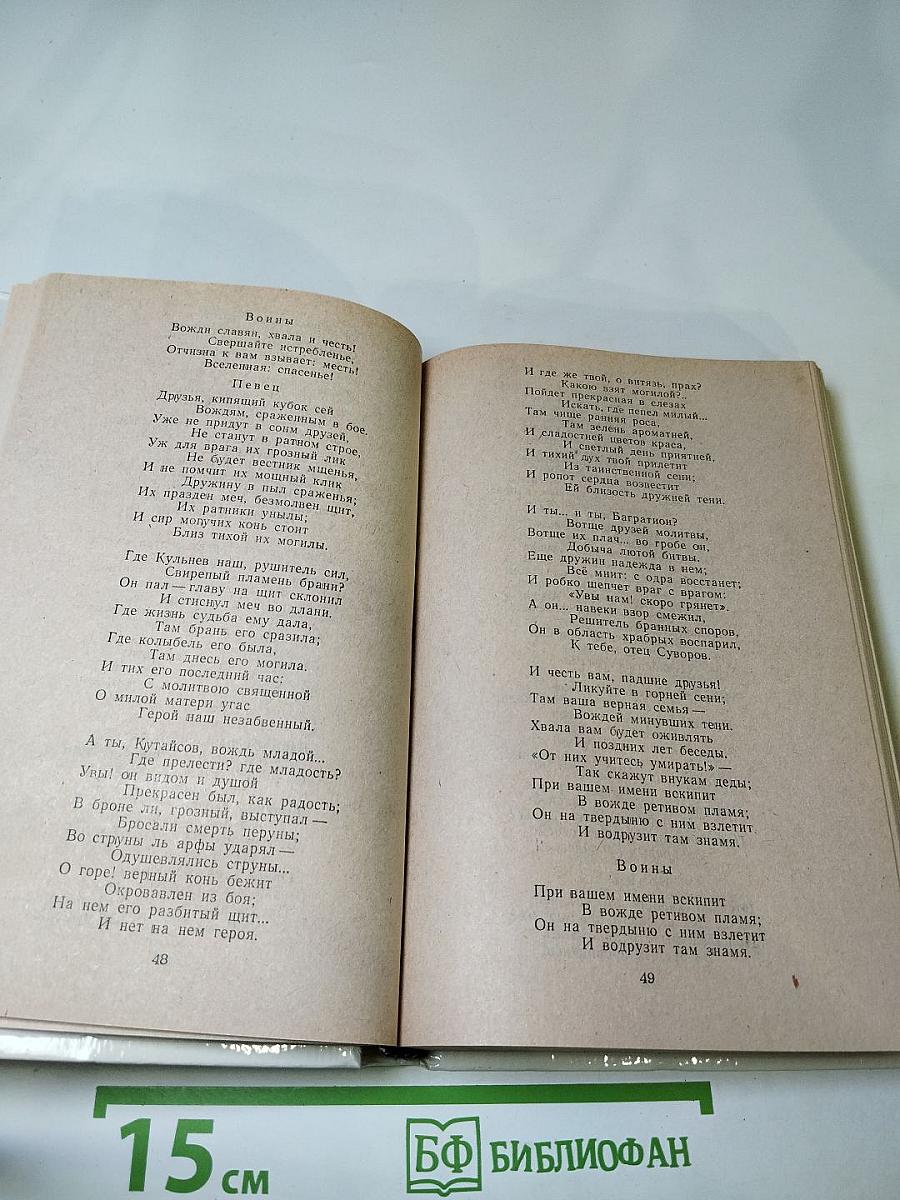 Воины
Вожди славян, хвала и честь!
Свершайте истребленье,
Отчизна к вам взывает: месть!
Вселенная: спасенье!
Певец
Друзья, кипящий кубок сей
Вождям, сраженным в бое.
Уже не придут в сонм друзей,
Не станут в ратном строе,
Уж для врага их грозный лик
Не будет вестник мщенья,
И не помчит их мощный клик
Дружину в пыл сраженья;
Их празден меч, безмолвен щит,
Их ратники унылы;
И сир могучих конь стоит
Близ тихой их могилы.
Где Кульнев наш, рушитель сил,
Свирепый пламень брани?
Он пал — главу на щит склонил
И стиснул меч во длани.
Где жизнь судьба ему дала,
Там брань его сразила;
Где колыбель его была,
Там днесь его могила.
И тих его последний час:
С молитвою священной
О милой матери угас
Герой наш незабвенный.
А ты, Кутайсов, вождь младой...
Где прелести? где младость?
Увы! он видом и душой
Прекрасен был, как радость;
В броне ли, грозный, выступал —
Бросали смерть перуны;
Во струны ль арфы ударял —
Одушевлялись струны...
О горе! верный конь бежит
Окровавлен из боя;
На нем его разбитый щит...
И нет на нем героя.
48
И где же твой, о витязь, прах?
Какою взят могилой?..
Пойдет прекрасная в слезах
Искать, где пепел милый...
Там чище ранняя роса,
Там зелень ароматней,
И сладостней цветов краса,
И светлый день приятней,
И тихий дух твой прилетит
Из таинственной сени;
И ропот сердца возвестит
Ей близость дружней тени.
И ты... и ты, Багратион?
Вотще друзей молитвы,
Вотще их плач... во гробе он,
Добыча лютой битвы.
Еще дружин надежда в нем;
Всё мнит: с одра восстанет;
И робко шепчет враг с врагом:
«Увы нам! скоро грянет».
А он... навеки взор смежил,
Решитель бранных споров,
Он в область храбрых воспарил,
К тебе, отец Суворов.
И честь вам, падшие друзья!
Ликуйте в горней сени;
Там ваша верная семья —
Вождей минувших тени.
Хвала вам будет оживлять
И поздних лет беседы.
«От них учитесь умирать!» —
Так скажут внукам деды;
При вашем имени вскипит
В вожде ретивом пламя;
Он на твердыню с ним взлетит
И водрузит там знамя.
Воины
При вашем имени вскипит
В вожде ретивом пламя;
Он на твердыню с ним взлетит
И водрузит там знамя.
49
15 см
БФ БИБЛИОФАН